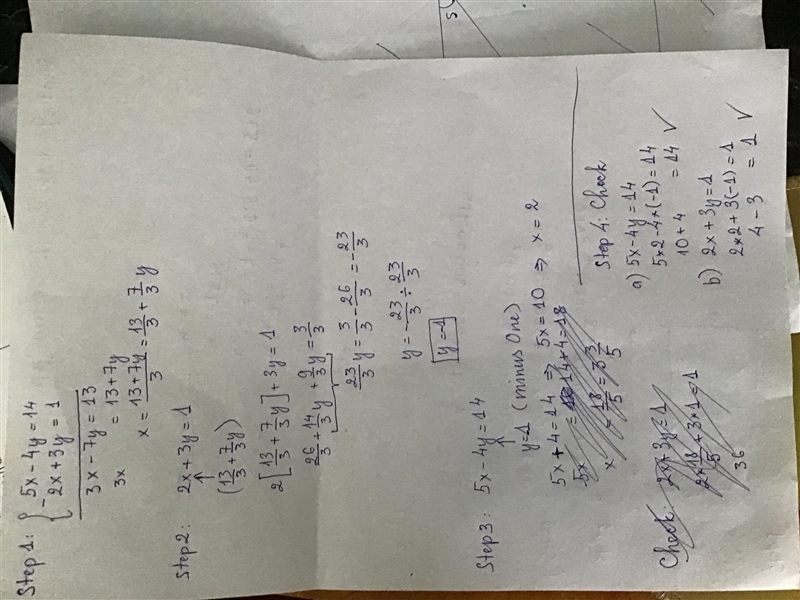 Step 1: { 5x - 4y = 14
- 2x + 3y = 1
3x - 7y = 13
3x = 13 + 7y
x = (13 + 7y)/3 = 13/3 + 7/3 y
Step 2: 2x + 3y = 1
↑
(13/3 + 7/3 y)
2[13/3 + 7/3 y] + 3y = 1
26/3 + 14/3 y + 9/3 y = 3/3
23/3 y = 3/3 - 26/3 = - 23/3
y = - 23/3 ÷ 23/3
y = -1
Step 3: 5x - 4y = 14
↑
y = -1 (minus One)
5x + 4 = 14 ⇒ 5x = 10 ⇒ x = 2
5x = 14 + 4 = 18
x = 18/5 = 3 3/5
Check: 2x + 3y = 1
2*18/5 + 3*1 = 1
36
Step 4: Check
a) 5x - 4y = 14
5*2 - 4*(-1) = 14
10 + 4 = 14 V
b) 2x + 3y = 1
2*2 + 3(-1) = 1
4 - 3 = 1 V